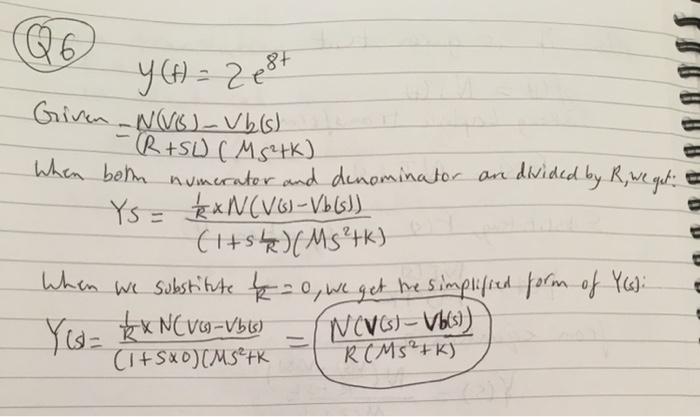 Q6
y(t) = 2e^8t
Given = N(V(s) - Vb(s)
(R + SL) (Ms²+K)
When both numerator and denominator are divided by R, we get:
YS = 1/R x N(V(s) - Vb(s))
(1 + s L/R)(Ms²+K)
When we substitute L/R = 0, we get the simplified form of Y(s):
Y(s) = 1/R x N(V(s) - Vb(s) = N(V(s) - Vb(s))
(1 + S x 0)(Ms²+K R(Ms²+K)